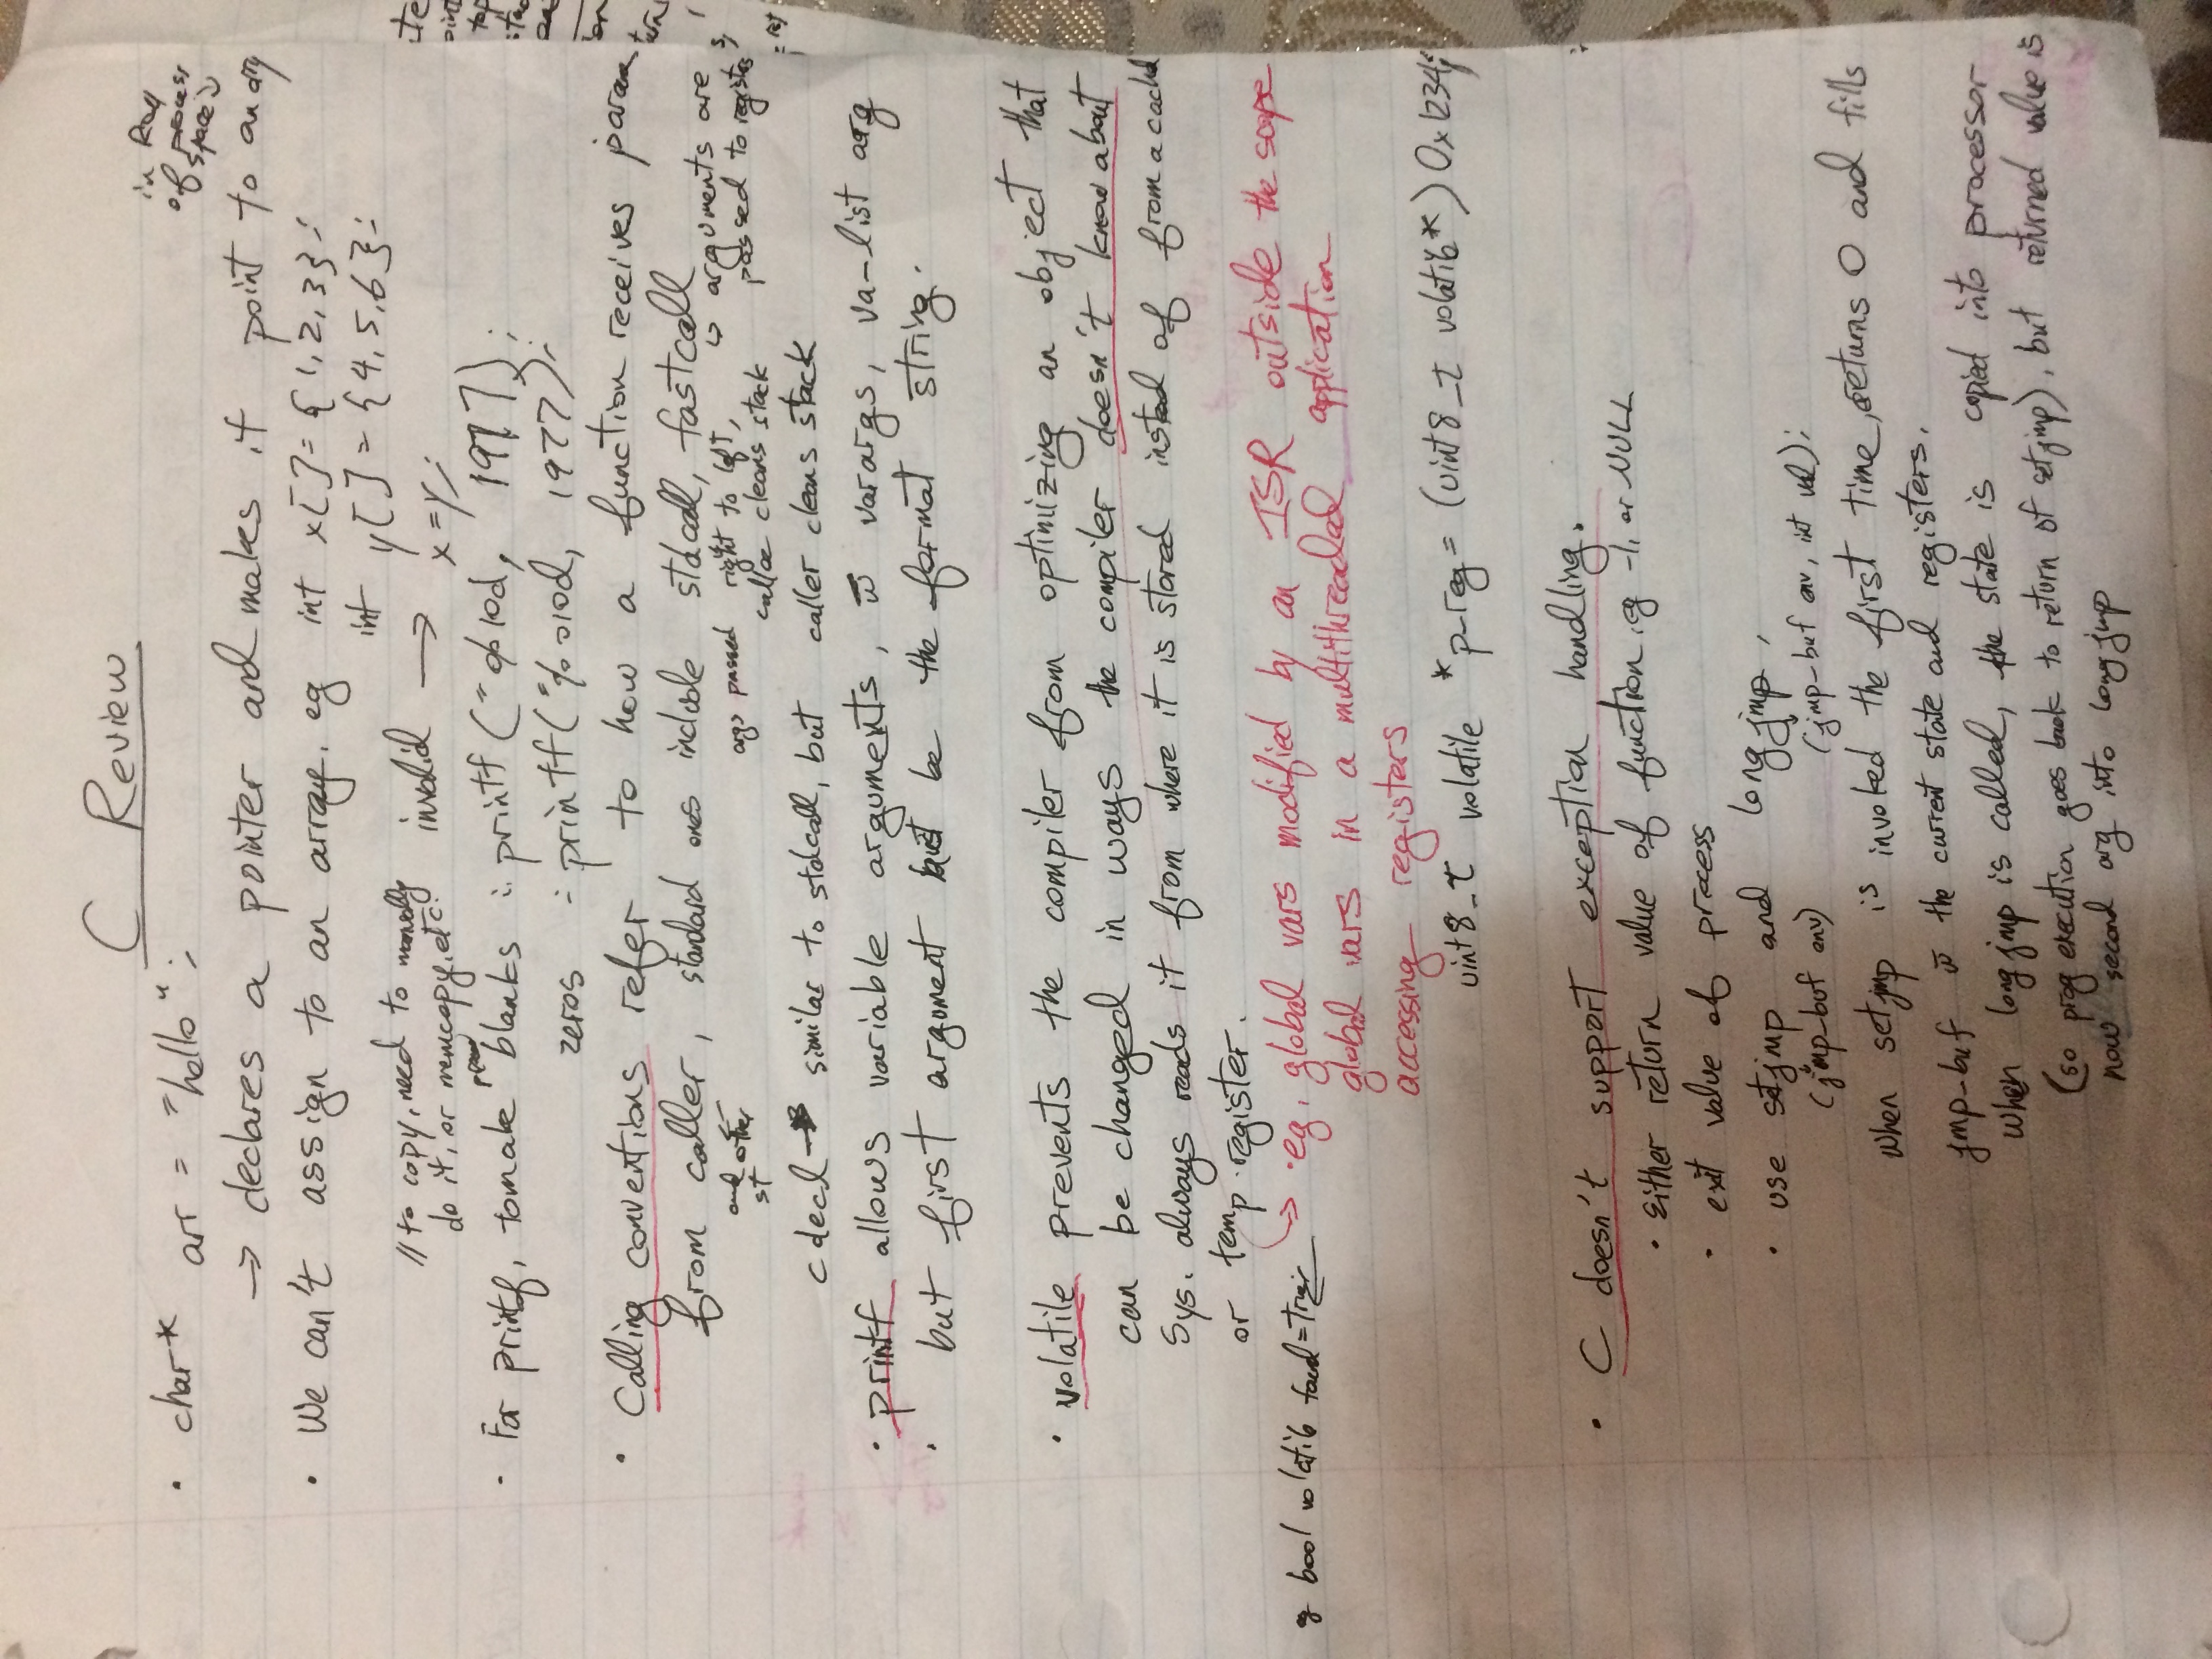 C Review
in ROM
of process
space
• char* arr = "hello";
→ declares a pointer and makes it point to an arry
• We can't assign to an array. eg int x[]= {1,2,3};
int y[] = {4,5,6};
// to copy, need to manually
do it, or memcopy, etc. invalid → x=y;
• For printf, to make blanks : printf ("%10d, 1977);
zeros : printf("%010d, 1977);
• Calling conventions refer to how a function receives param
from caller, standard ones include stdcall, fastcall
and other
st
args passed right to left,
callee cleans stack
↳ arguments are
passed to registers
cdecl → similar to stdcall, but caller cleans stack
• printf allows variable arguments, w varargs, va-list arg
• but first argument must be the format string.
• volatile prevents the compiler from optimizing an object that
can be changed in ways the compiler doesn't know about
Sys. always reads it from where it is stored instead of from a cached
or temp register.
bool volatile found=True;
→ •eg, global vars modified by an ISR outside the scope
global vars in a multithreaded application
accessing registers
uint8_t volatile *p-reg= (uint8_t volatile*) 0x1234;
• C doesn't support exception handling.
• Either return value of function, eg -1, or NULL
• exit value of process
• use setjmp and longjmp,
(jmp-buf env) (jmp-buf env, int val);
when setjmp is invoked the first time, returns 0 and fills
jmp-buf w the current state and registers.
when longjmp is called, the state is copied into processor
(so prog execution goes back to return of setjmp), but returned value is
now second arg into longjmp